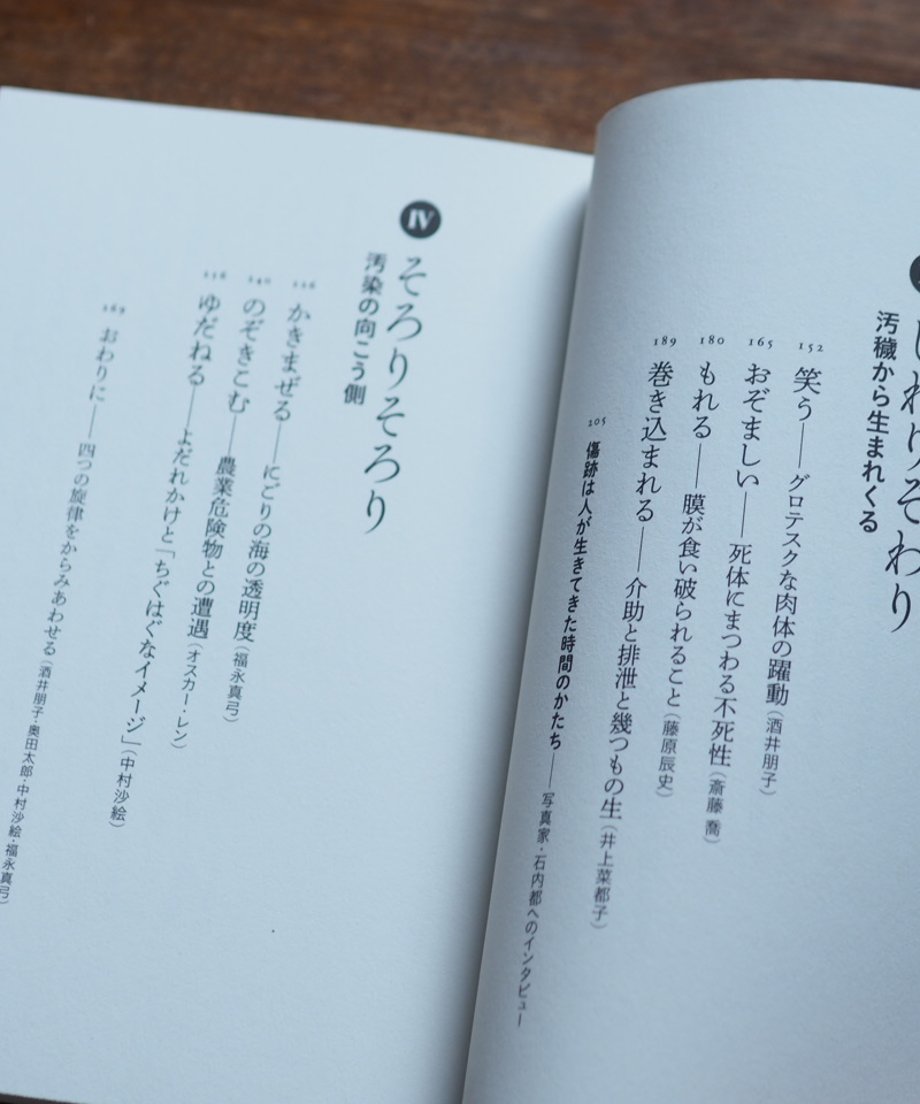 りそわり
汚穢から生まれくる
152 笑う——グロテスクな肉体の躍動（酒井朋子）
165 おぞましい——死体にまつわる不死性（斎藤 喬）
180 もれる——膜が食い破られること（藤原辰史）
189 巻き込まれる——介助と排泄と幾つもの生（井上菜都子）
205 傷跡は人が生きてきた時間のかたち——写真家・石内都へのインタビュー
IV そろりそろり
汚染の向こう側
226 かきまぜる——にごりの海の透明度（福永真弓）
240 のぞきこむ——農業危険物との遭遇（オスカー・レン）
256 ゆだねる——よだれかけと「ちぐはぐなイメージ」（中村沙絵）
269 おわりに——四つの旋律をからみあわせる（酒井朋子・奥田太郎・中村沙絵・福永真弓）